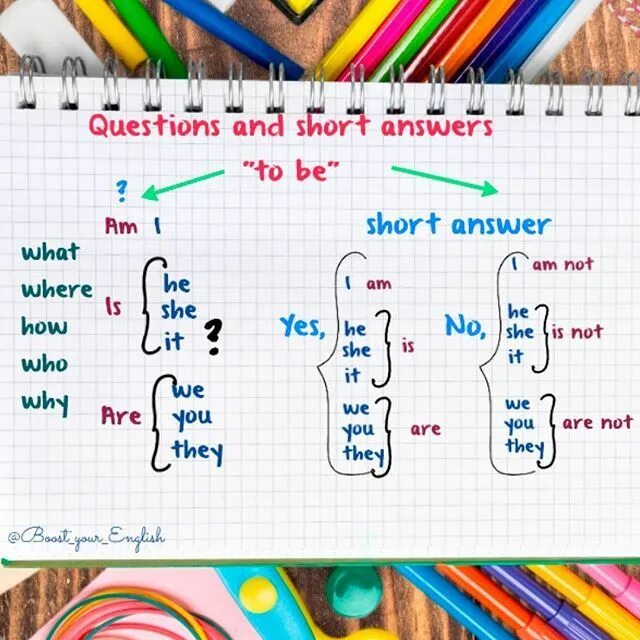 Questions and short answers
"to be"
?
Am I
what
where
how
who
why
Is
he
she
it
?
Are
we
you
they
short answer
Yes,
I am
he
she
it
is
we
you
they
are
No,
I am not
he
she
it
is not
we
you
they
are not
@Boost_your_English